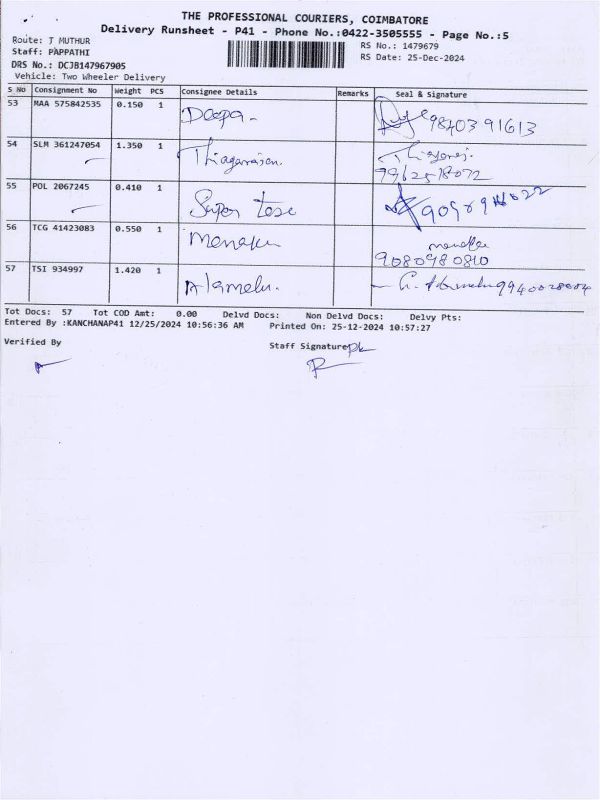 THE PROFESSIONAL COURIERS, COIMBATORE
Delivery Runsheet - P41 - Phone No.:0422-3505555 - Page No.:5
Route: T MUTHUR
RS No.: 1479679
Staff: PAPPATHI
RS Date: 25-Dec-2024
DRS No.: DCJB147967905
Vehicle: Two Wheeler Delivery
S No Consignment No Weight PCS Consignee Details Remarks Seal & Signature
53 MAA 575842535 0.150 1 Deepa - 98403 91613
54 SLM 361247054 1.350 1 Thiagarajan.
7962518072
55 POL 2067245 0.410 1 Super
56 TCG 41423083 0.550 1 menaka menaka
9080980810
57 TSI 934997 1.420 1 Alamelu.
Tot Docs: 57 Tot COD Amt: 0.00 Delvd Docs: Non Delvd Docs: Delvy Pts:
Entered By :KANCHANAP41 12/25/2024 10:56:36 AM Printed On: 25-12-2024 10:57:27
Verified By Staff Signature